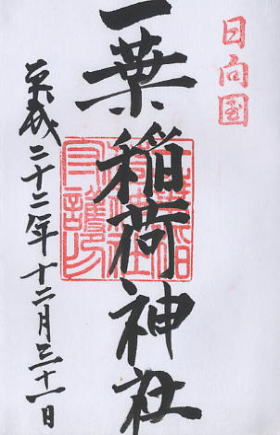 日向国
一葉稲荷神社
平成二十二年十二月三十一日